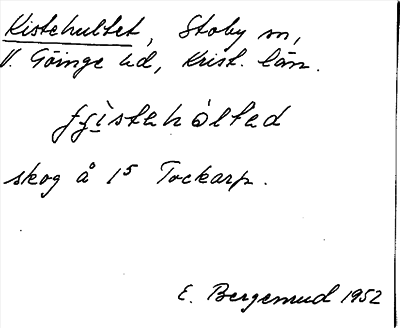 Kistehultet, Stoby sn,
V. Göinge hd, Krist. län.
skog å 1⁵ Tockarp.
E. Bergemud 1952